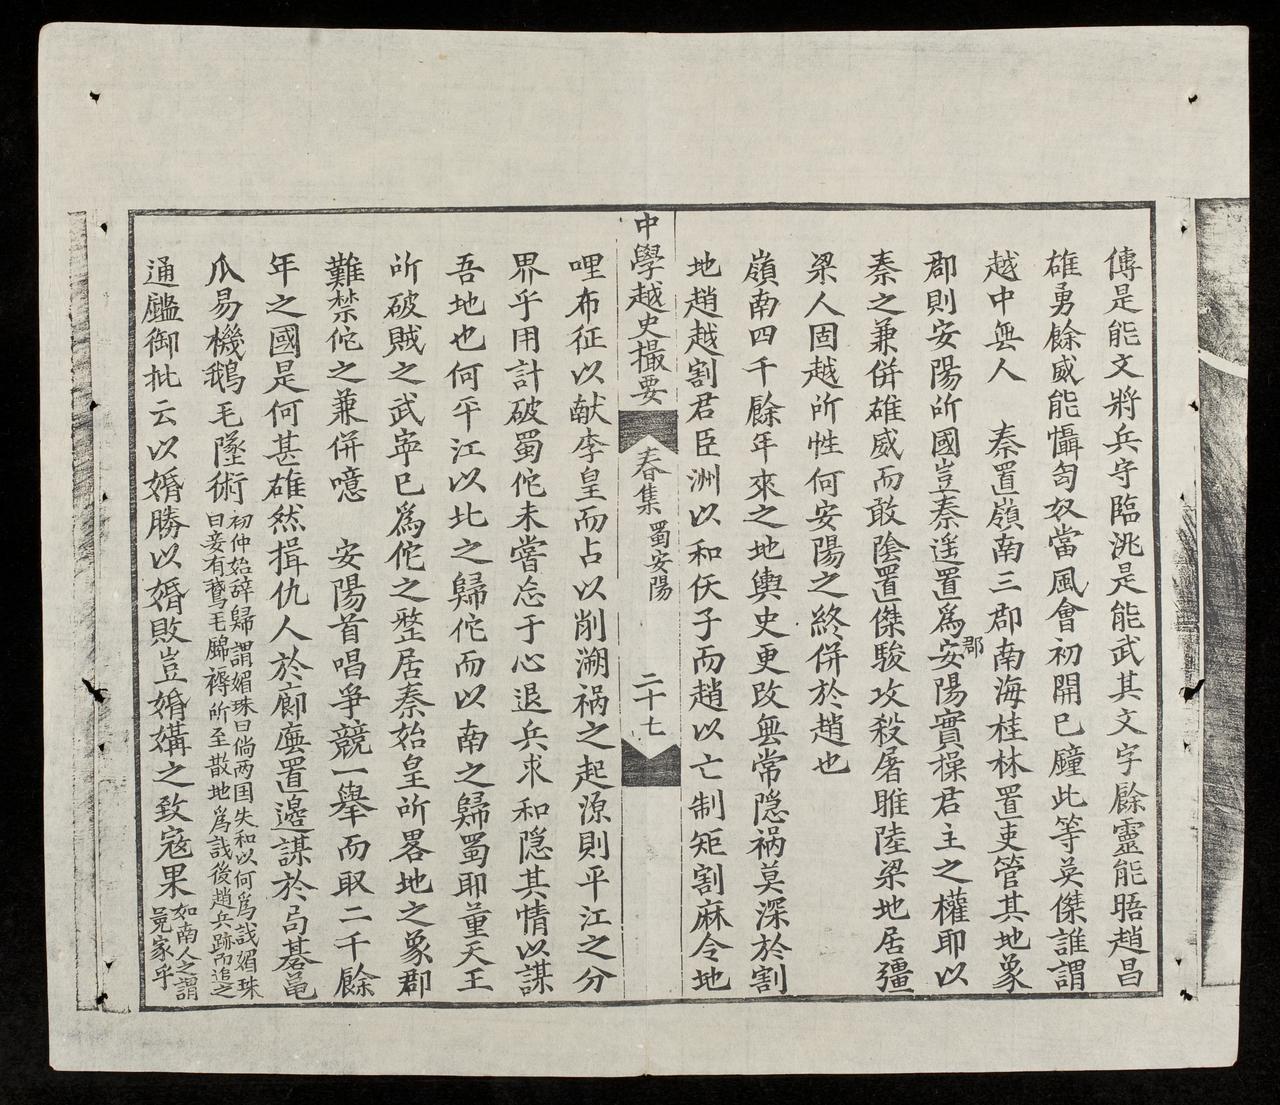 傳是能文將兵守臨洮是能武其文字餘靈能晤趙昌
雄勇餘威能懾匈奴當風會初開已鐘此等英傑誰謂
越中無人 秦置嶺南三郡南海桂林置吏管其地象
郡則安陽所國豈秦遙置爲安陽實操君主之權耶以
郡
秦之兼併雄威而敢陰置傑駿攻殺屠睢陸梁地居彊
梁人固越所性何安陽之終併於趙也
嶺南四千餘年來之地輿史更改無常隐禍莫深於割
地趙越割君臣洲以和仸子而趙以亡制矩割麻令地
中學越史撮要
春集 蜀安陽
二十七
哩布征以献李皇而占以削溯禍之起源則平江之分
界乎用計破蜀佗未嘗忘于心退兵求和隐其情以謀
吾地也何平江以北之歸佗而以南之歸蜀耶董天王
所破賊之武寧已爲佗之整居秦始皇所畧地之象郡
難禁佗之兼併噫 安陽首唱爭競一舉而取二千餘
年之國是何甚雄然揖仇人於廊廡置邊謀於局碁黽
爪易機鵝毛墜術
初仲始辞歸謂媚珠曰倘两国失和以何爲哉媚珠
曰妾有鵞毛錦褥所至散地爲哉後趙兵跡而追之
通鑑御批云以婚勝以婚敗豈婚媾之致寇果
如南人之謂
冕家乎